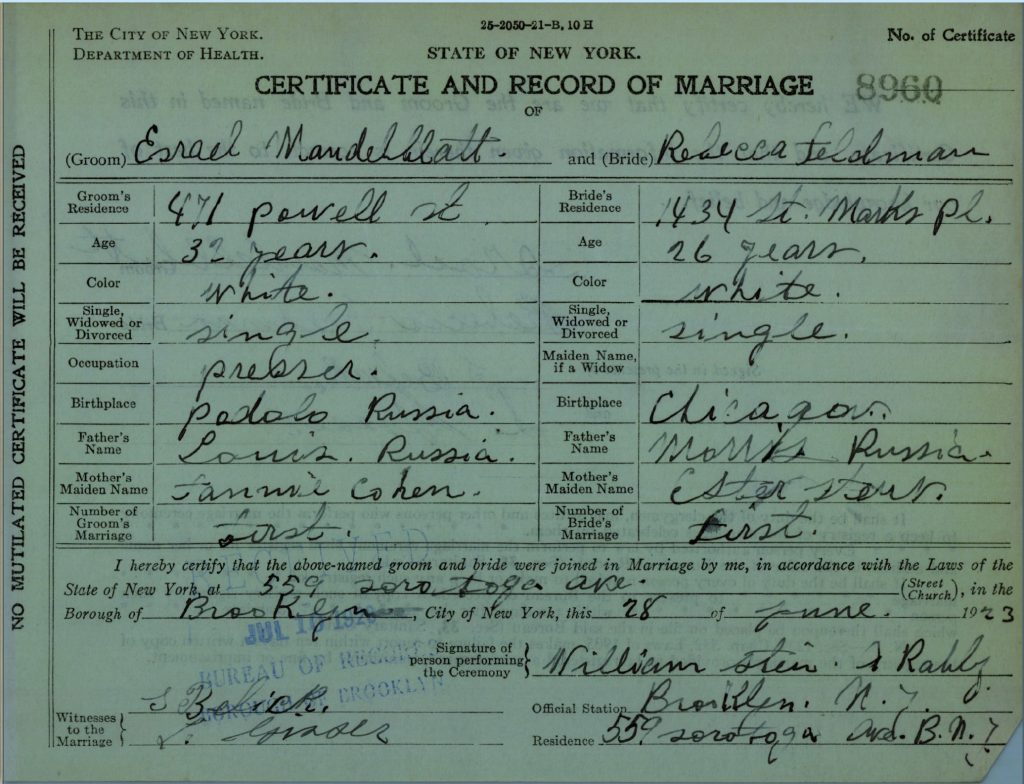 25-2050-21-B, 10 H
THE CITY OF NEW YORK.
DEPARTMENT OF HEALTH.
STATE OF NEW YORK.
No. of Certificate
CERTIFICATE AND RECORD OF MARRIAGE
8960
OF
(Groom) Esrael Mandelblatt. and (Bride) Rebecca Feldman
Groom's Residence 471 powell st Bride's Residence 1434 St. Marks pl.
Age 32 years. Age 26 years.
Color white. Color white.
Single, Widowed or Divorced single. Single, Widowed or Divorced single.
Occupation presser. Maiden Name, if a Widow
Birthplace podolo Russia. Birthplace Chicago
Father's Name Louis. Russia. Father's Name Morris Russia.
Mother's Maiden Name Fannie Cohen. Mother's Maiden Name Ester
Number of Groom's Marriage first. Number of Bride's Marriage first.
I hereby certify that the above-named groom and bride were joined in Marriage by me, in accordance with the Laws of the
State of New York, at 559 soro toga ave. (Street Church), in the
Borough of Brooklyn, City of New York, this 28 of june. 1923
RECEIVED
JUL 10
BUREAU OF RECORDS
BOROUGH OF BROOKLYN
Signature of person performing the Ceremony William Stein.
Official Station Brooklyn. N. Y.
Witnesses to the Marriage
Residence 559 sorotoga Ave. B. N. Y
NO MUTILATED CERTIFICATE WILL BE RECEIVED